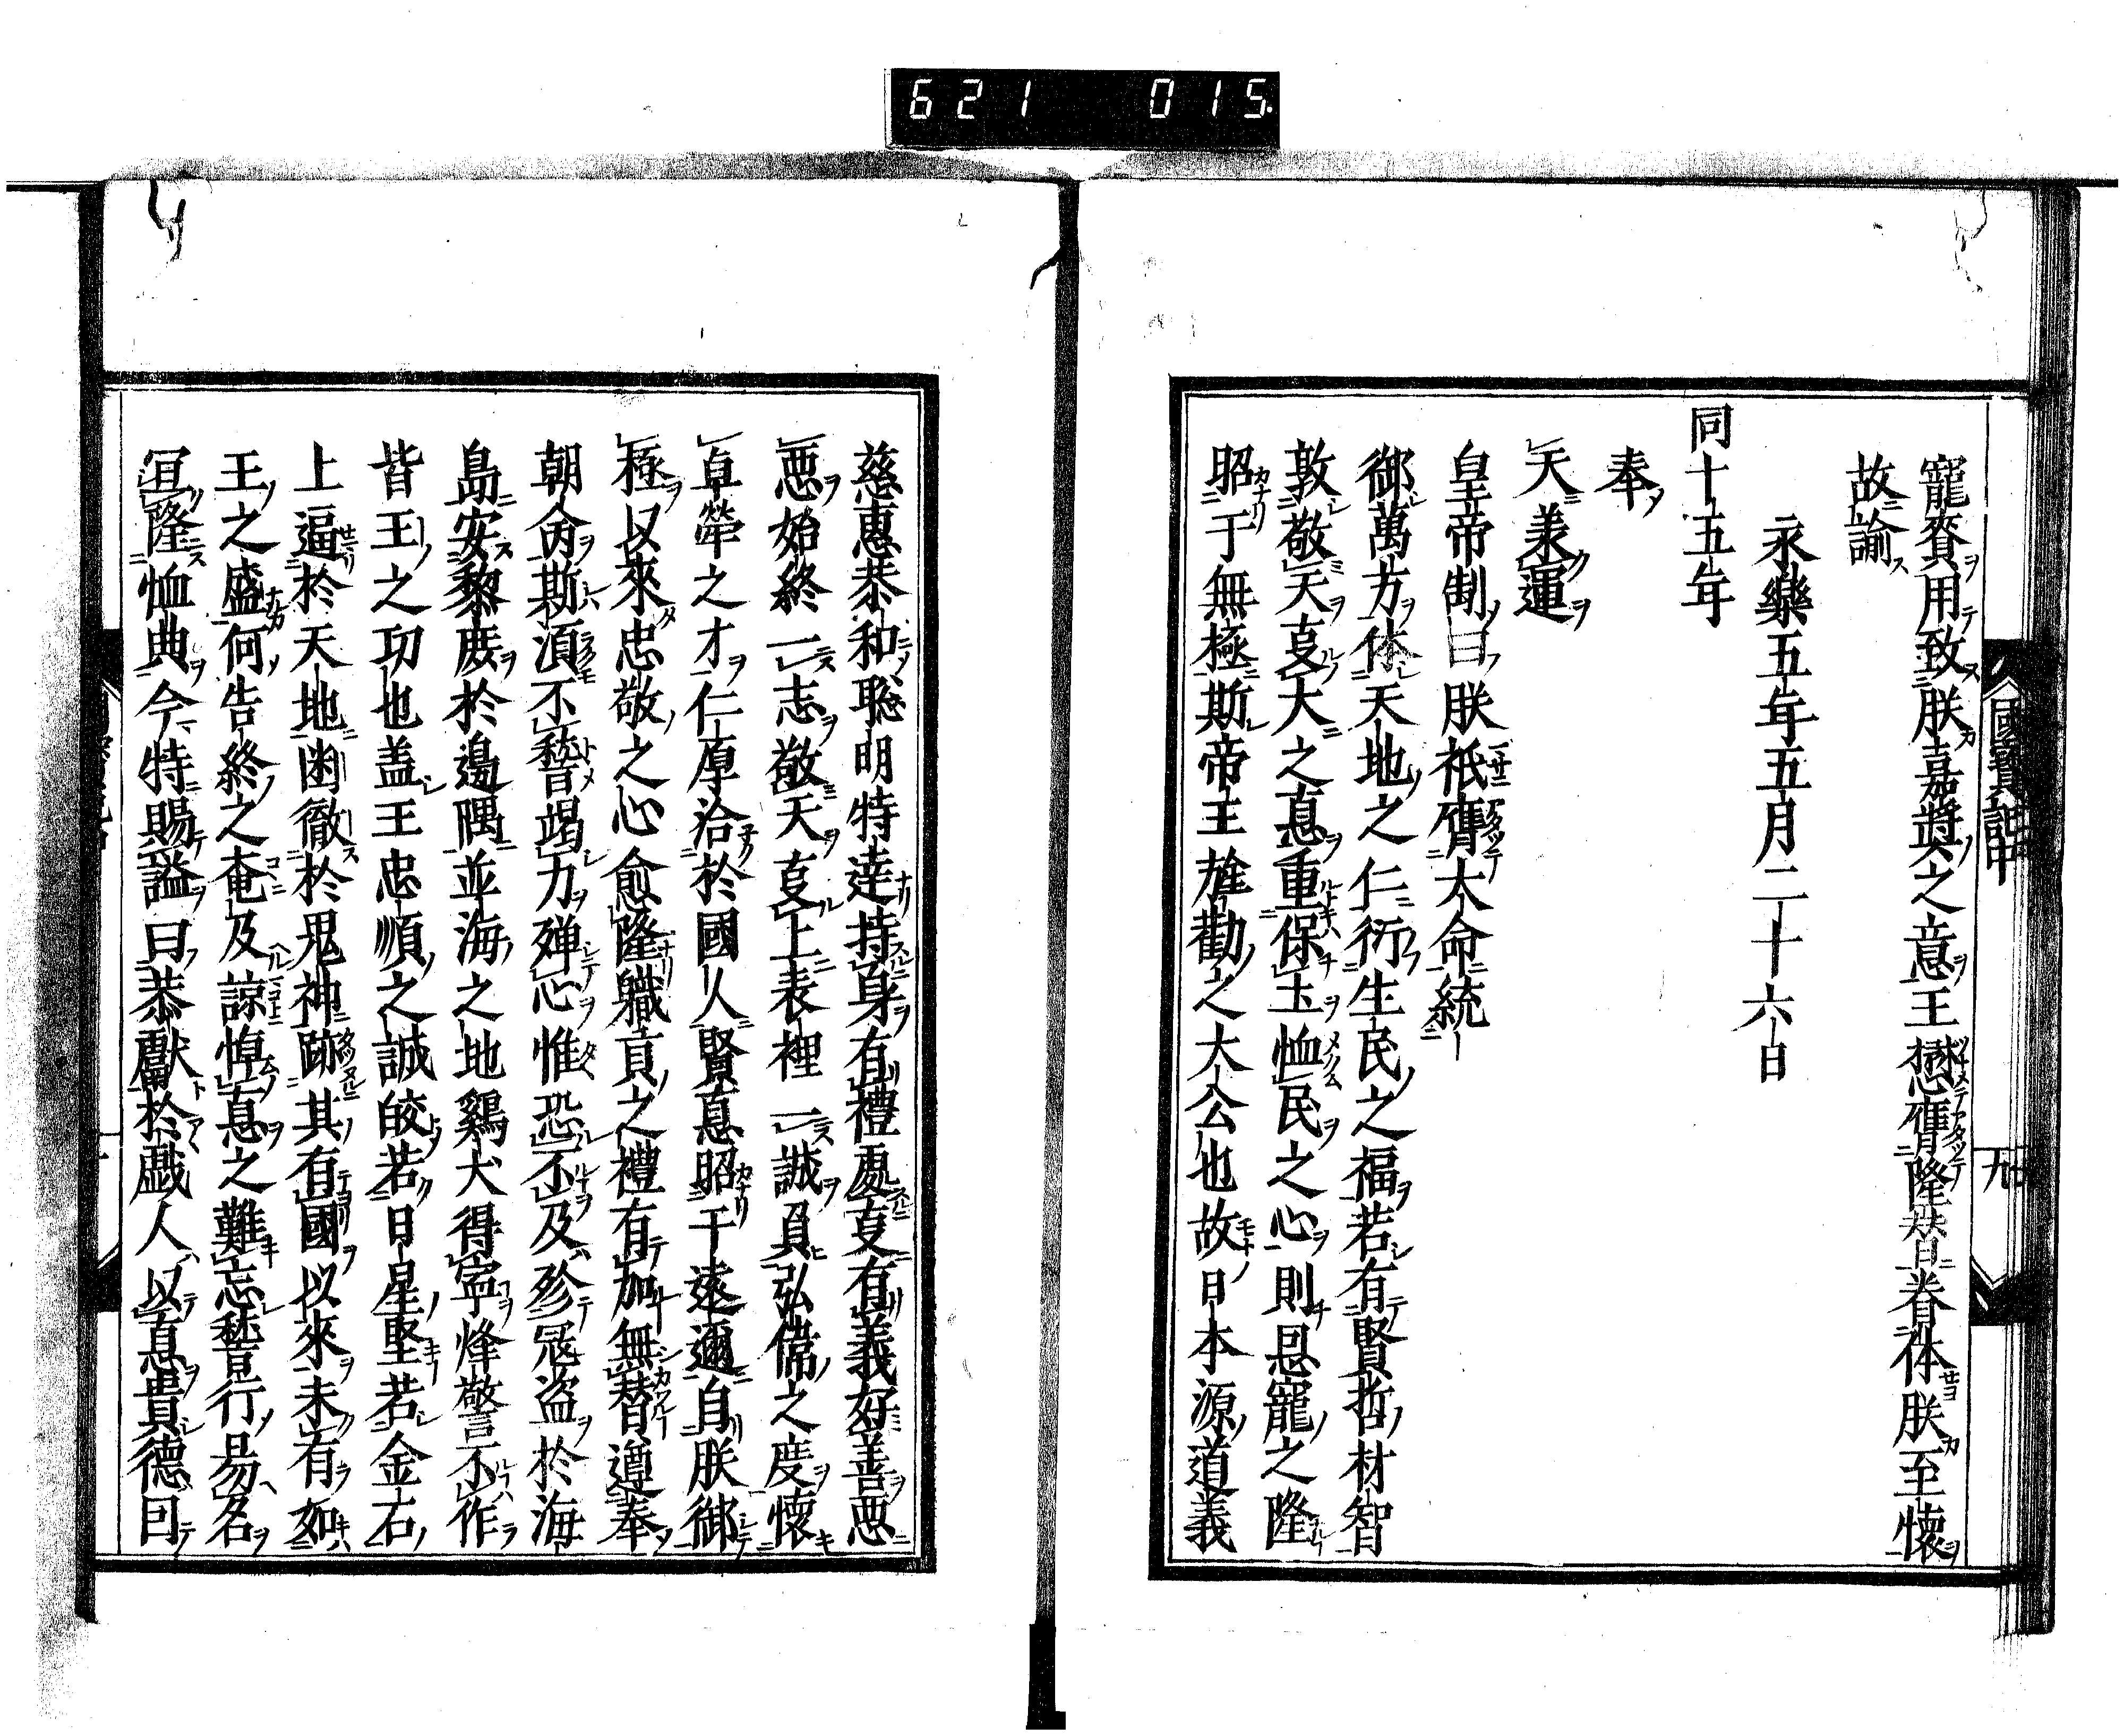 621 015
寵賚用致朕嘉奬之意王懋膺隆替眷体朕至懷
故諭
永樂五年五月二十六日
同十五年
奉
天美運
皇帝制曰朕祇膺大命統
御萬方体天地之仁衍生民之福若有賢哲材智
敦敬天㕝大之悳重保土恤民之心則恩寵之隆
昭于無極斯帝王旌勸之大公也故日本源道義
慈惠恭和聡明特達持身有禮處㕝有義好善悪
悪始終一志敬天㕝上表裡一誠負弘偉之度懷
卓犖之才仁厚洽於國人賢悳昭于遠邇自朕御
極以來忠敬之心愈隆職貢之禮有加無替遵奉
朝命斯須不稽竭力殫心惟恐不及殄冦盗於海
島安黎庻於邊隅並海之地鷄犬得寧烽警不作
皆王之功也盖王忠順之誠皎若日星堅若金石
上逼於天地幽徹於鬼神跡其有國以來未有如
王之盛何告終之奄及諒惟悳之難忘稽行易名
冝隆恤典今特賜謚曰恭獻於戯人以悳貴德因
國寳記中
九